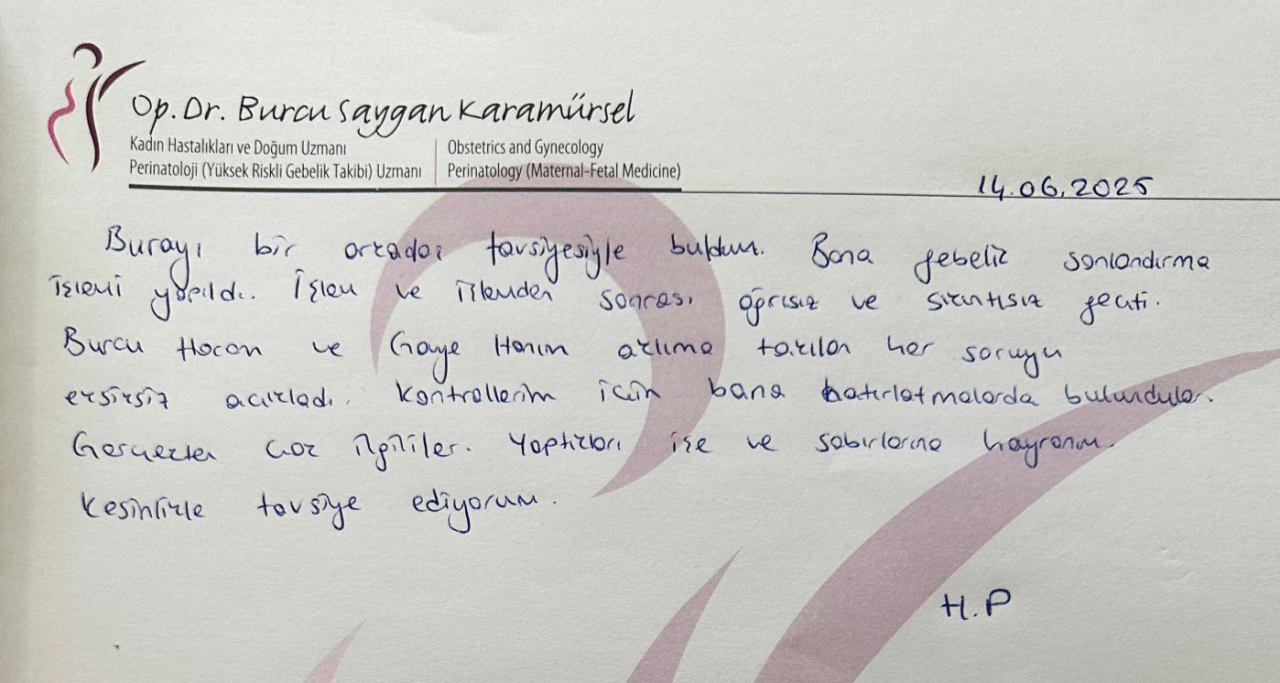 Op. Dr. Burcu Saygan Karamürsel
Kadın Hastalıkları ve Doğum Uzmanı
Perinatoloji (Yüksek Riskli Gebelik Takibi) Uzmanı
Obstetrics and Gynecology
Perinatology (Maternal-Fetal Medicine)
14.06.2025
Burayı bir arkadaş tavsiyesiyle buldum. Bana gebelik sonlandırma
işlemi yapıldı. İşlem ve işlemden sonrası ağrısız ve sıkıntısız geçti.
Burcu Hocam ve Gaye Hanım aklıma takılan her soruyu
eksiksiz açıkladı. Kontrollerim için bana hatırlatmalarda bulundular.
Gerçekten çok ilgililer. Yaptıkları işe ve sabırlarına hayranım.
Kesinlikle tavsiye ediyorum.
H.P